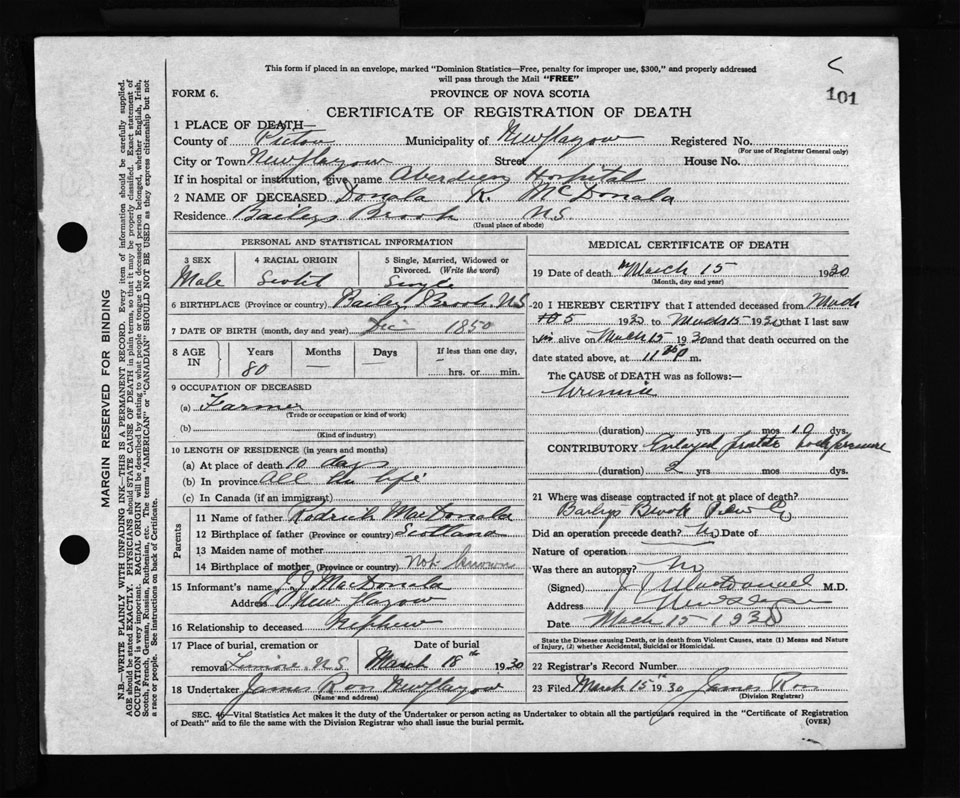 This form if placed in an envelope, marked "Dominion Statistics—Free, penalty for improper use, $300," and properly addressed
will pass through the Mail "FREE"
101
FORM 6.
PROVINCE OF NOVA SCOTIA
CERTIFICATE OF REGISTRATION OF DEATH
1 PLACE OF DEATH—
County of Pictou Municipality of New Glasgow Registered No.
(For use of Registrar General only)
City or Town New Glasgow Street House No.
If in hospital or institution, give name Aberdeen Hospital
2 NAME OF DECEASED Donald R. McDonald
Residence Baileys Brook NS
(Usual place of abode)
PERSONAL AND STATISTICAL INFORMATION
3 SEX 4 RACIAL ORIGIN 5 Single, Married, Widowed or
Divorced. (Write the word)
Male Scotch Single
6 BIRTHPLACE (Province or country) Bailey Brook. NS
7 DATE OF BIRTH (month, day and year) Dec 1850
8 AGE IN Years Months Days If less than one day,
80 — hrs. or min.
9 OCCUPATION OF DECEASED
(a) Farmer
(Trade or occupation or kind of work)
(b)
(Kind of industry)
10 LENGTH OF RESIDENCE (in years and months)
(a) At place of death 10 days
(b) In province All his life
(c) In Canada (if an immigrant)
Parents
11 Name of father Rodrick MacDonald
12 Birthplace of father (Province or country) Scotland
13 Maiden name of mother
14 Birthplace of mother (Province or country) Not known
15 Informant's name J J MacDonald
Address New Glasgow
16 Relationship to deceased Nephew
17 Place of burial, cremation or Date of burial
removal Lismore. NS March 18th 1930
18 Undertaker James Ross New Glasgow
(Name and address)
MEDICAL CERTIFICATE OF DEATH
19 Date of death March 15 1930
(Month, day and year)
20 I HEREBY CERTIFY that I attended deceased from March
5 1930 to March 15 1930 that I last saw
him alive on March 15 1930 and that death occurred on the
date stated above, at 11 m.
The CAUSE of DEATH was as follows:—
Uremia
(duration) yrs mos 10 dys.
CONTRIBUTORY Enlarged prostate
(duration) 2 yrs. mos dys.
21 Where was disease contracted if not at place of death?
Baileys Brook Pictou Co
Did an operation precede death? No Date of
Nature of operation
Was there an autopsy? No
(Signed) J J MacDonald M.D.
Address New Glasgow
Date March 15 1930
State the Disease causing Death, or in death from Violent Causes, state (1) Means and Nature
of Injury, (2) whether Accidental, Suicidal or Homicidal.
22 Registrar's Record Number
23 Filed March 15th 1930 James Ross
(Division Registrar)
SEC. 46—Vital Statistics Act makes it the duty of the Undertaker or person acting as Undertaker to obtain all the particulars required in the "Certificate of Registration
of Death" and to file the same with the Division Registrar who shall issue the burial permit.
(OVER)
MARGIN RESERVED FOR BINDING
N.B.—WRITE PLAINLY WITH UNFADING INK—THIS IS A PERMANENT RECORD. Every item of information should be carefully supplied.
AGE should be stated EXACTLY. PHYSICIANS should STATE CAUSE OF DEATH in plain terms so that it may be properly classified. Exact statement of
OCCUPATION is very important. RACIAL ORIGIN will be described by stating to what people or tongue the deceased person belonged, whether English, Irish,
Scotch, French, German, Russian, Ruthenian, etc. The terms "AMERICAN" or "CANADIAN" SHOULD NOT BE USED as they express citizenship but not
a race or people. See instructions on back of Certificate.